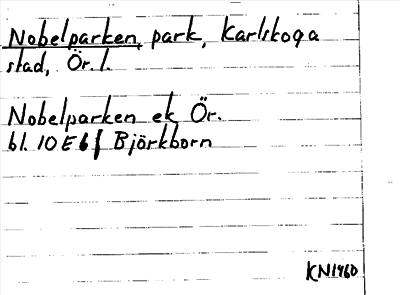 Nobelparken, park, Karlskoga
stad, Ör. l.
Nobelparken ek Ör.
bl. 10E6f Björkborn
KN1960